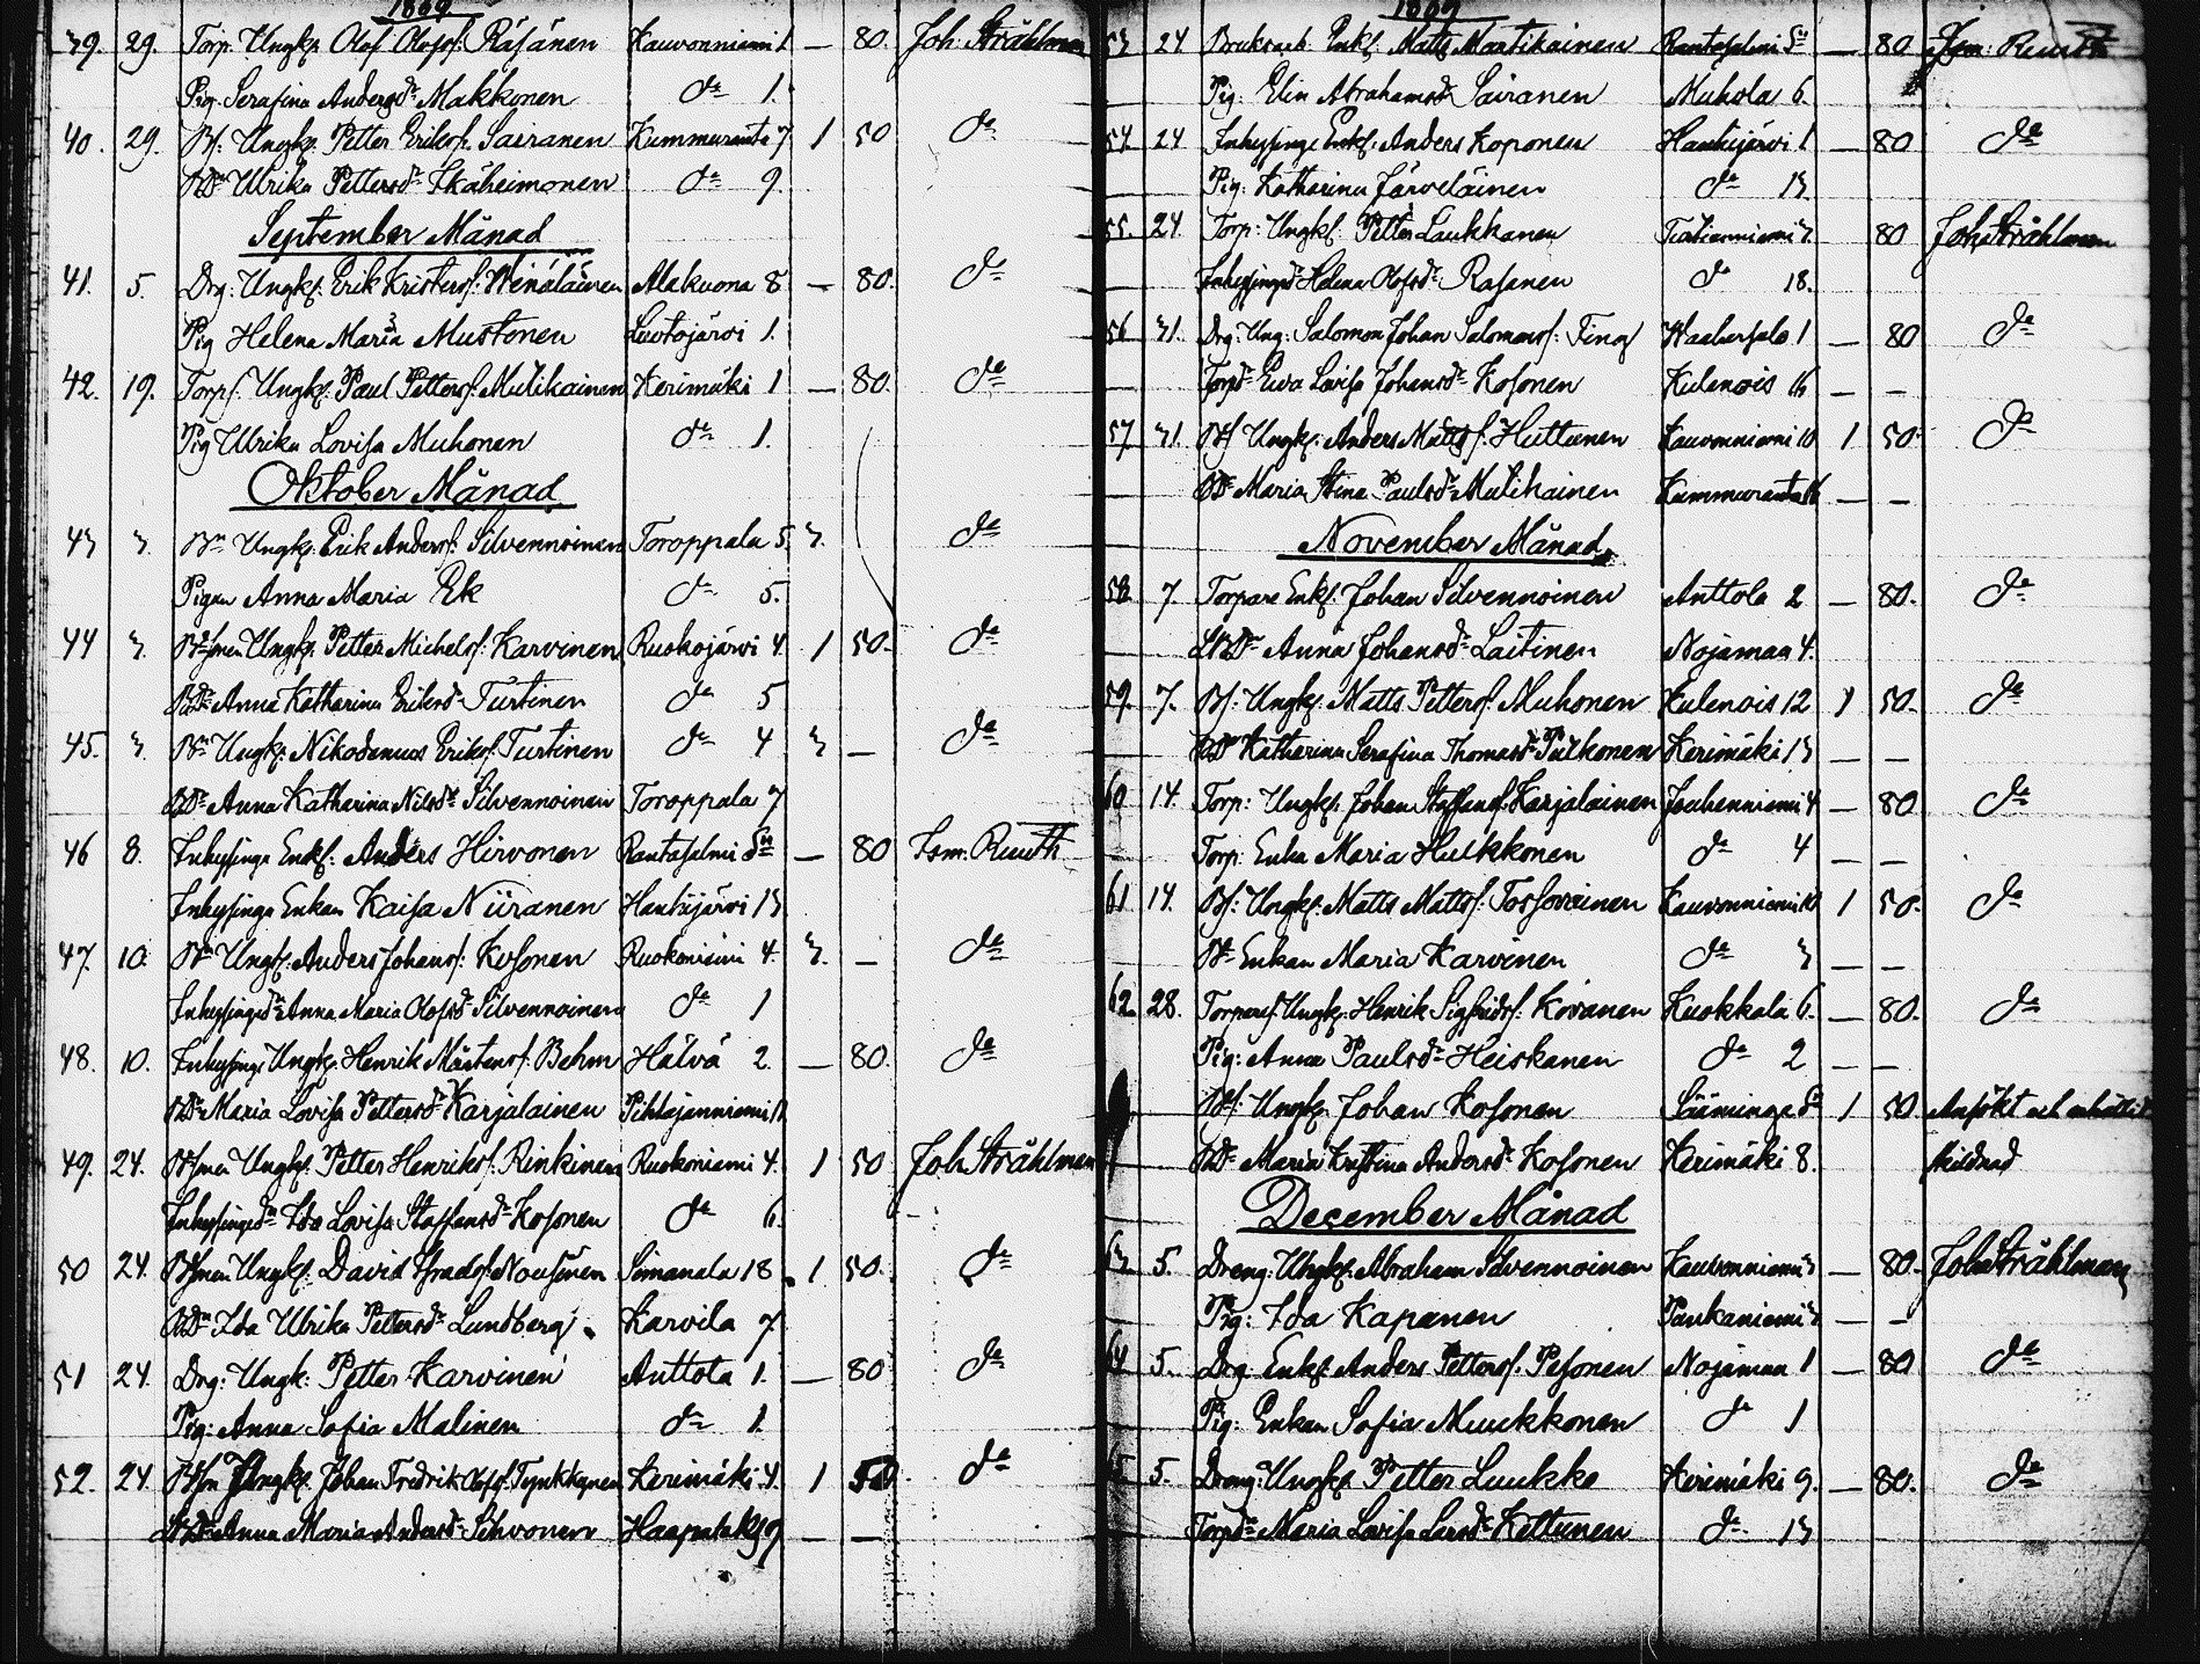 1869
39. 29. Torp. Ungk. Olof Olofss: Räsänen Kauvonniemi 1 — 80. Joh. Stråhlman
Pig. Serafina Andersdr Makkonen do 1.
40. 29. Bs: Ungk. Petter Erikss. Sairanen Kummuranta 7. 1 50 do
BDr Ulrika Pettersdr Ikäheimonen do 9.
September Månad
41. 5. Drg: Ungk. Erik Kristerss. Wenäläinen Alakuona 8 — 80. do
Pig Helena Maria Mustonen Luotojärvi 1.
42. 19. Torps. Ungk. Paul Petterss. Mulikainen Kerimäki 1 — 80. do
Pig Ulrika Lovisa Muhonen do 1.
Oktober Månad
43 3. Bn Ungk. Erik Anderss. Silvennoinen Toroppala 5. 3. do
Pigan Anna Maria Ek do 5.
44 3. Ungk. Petter Michelss. Karvinen Ruokojärvi 4. 1 50. do
BDr Anna Katharina Eriksdr Turtinen do 5
45. 3. Bn Ungk. Nikodemus Erikss. Turtinen do 4 3 — do
BDr Anna Katharina Nilsdr Silvennoinen Toroppala 7
46 8. Inhysinge Enkl: Anders Hirvonen Rantasalmi Sn — 80 Ism. Ruuth
Inhysinge Enkan Kaisa Niiranen Hankijärvi 13
47. 10. Bn Ungk. Anders Johanss: Kosonen Ruokoniemi 4. 3. — do
Inhysingedr Anna Maria Olofsdr Silvennoinen do 1
48. 10. Inhysinge Ungk. Henrik Mårtenss. Behm Hälvä 2. — 80. do
BDr Maria Lovisa Pettersdr Karjalainen Pihlajanniemi
49. 24. Ungk. Petter Henrikss. Rinkinen Ruokoniemi 4. 1 50 Joh Stråhlman
Inhysingedr Ida Lovisa Staffansdr Kosonen do 6.
50 24. Ungk. David Nousiinen Simanala 18 1 50. do
BDr Ida Ulrika Pettersdr Lundberg Karvila 7
51 24. Drg: Ungk. Petter Karvinen Anttola 1. — 80 do
Pig: Anna Sofia Malinen do 1.
52. 24. Ungk. Johan Fredrik Olofss. Tynkkynen Kerimäki 4. 1 50 do
BDr Anna Maria Andersdr Sihvonen Haapalaks 9 — —
1869
53 24 Bruksarb. Enkl. Matts Maatikainen Rantasalmi Sn — 80 Ism: Ruuth
Pig: Elin Abrahamsdr Sairanen Muhola 6.
54. 24 Inhysinge Enkl. Anders Koponen Hankijärvi 1 — 80 do
Pig: Katharina Järveläinen do 13
55. 24. Torp: Ungk. Petter Laukkanen Turtianniemi 3. 80 Joh Stråhlman
Inhysingedr Helena Olofsdr Räsänen do 18.
56 31. Drg: Ung: Salomon Johan Salomonss: Finn Waahersalo 1 — 80 do
Torpdr Eva Lovisa Johansdr Kosonen Kulenois 16 — —
57. 31. Bs Ungk. Anders Mattss. Huttunen Kauvonniemi 10 1 50. do
BDr Maria Stina Paulsdr Mulikainen Kummuranta 16 — —
November Månad
58. 7. Torpare Enkl. Johan Silvennoinen Anttola 2 — 80. do
BDr Anna Johansdr Laitinen Nojamaa 4.
59. 7. Bs: Ungk. Matts Petterss. Muhonen Kulenois 12 1 50. do
BDr Katharina Serafina Thomasdr Pulkonen Kerimäki 13 — —
60 14. Torp: Ungk. Johan Staffanss. Karjalainen Jouhenniemi 4 — 80 do
Torp: Enka Maria Hulkkonen do 4 — —
61 14. Bs: Ungk. Matts Mattss: Tossavainen Kauvonniemi 10 1 50. do
Bn Enkan Maria Karvinen do 3 — —
62. 28. Torpares. Ungk. Henrik Sigfridss: Kovanen Kuokkala 6. — 80. do
Pig: Anna Paulsdr Heiskanen do 2 — —
Bs: Ungk. Johan Kosonen Säminge Sn 1 50 Ansökt och erhållit
BDr Maria Kristina Andersdr Kosonen Kerimäki 8. skildnad
December Månad
63. 5. Dreng: Ungk. Abraham Silvennoinen Kauvonniemi 3 — 80. Joh Stråhlman
Pig: Ida Kapanen Paukaniemi 3 — —
64 5. Drg: Enkl. Anders Petterss. Pesonen Nojamaa 1 — 80 do
Pig: Enkan Sofia Muukkonen do 1
65 5. Dreng: Ungk. Petter Luukko Kerimäki 9. — 80. do
Torpdr Maria Lovisa Larsdr Kettunen do 13